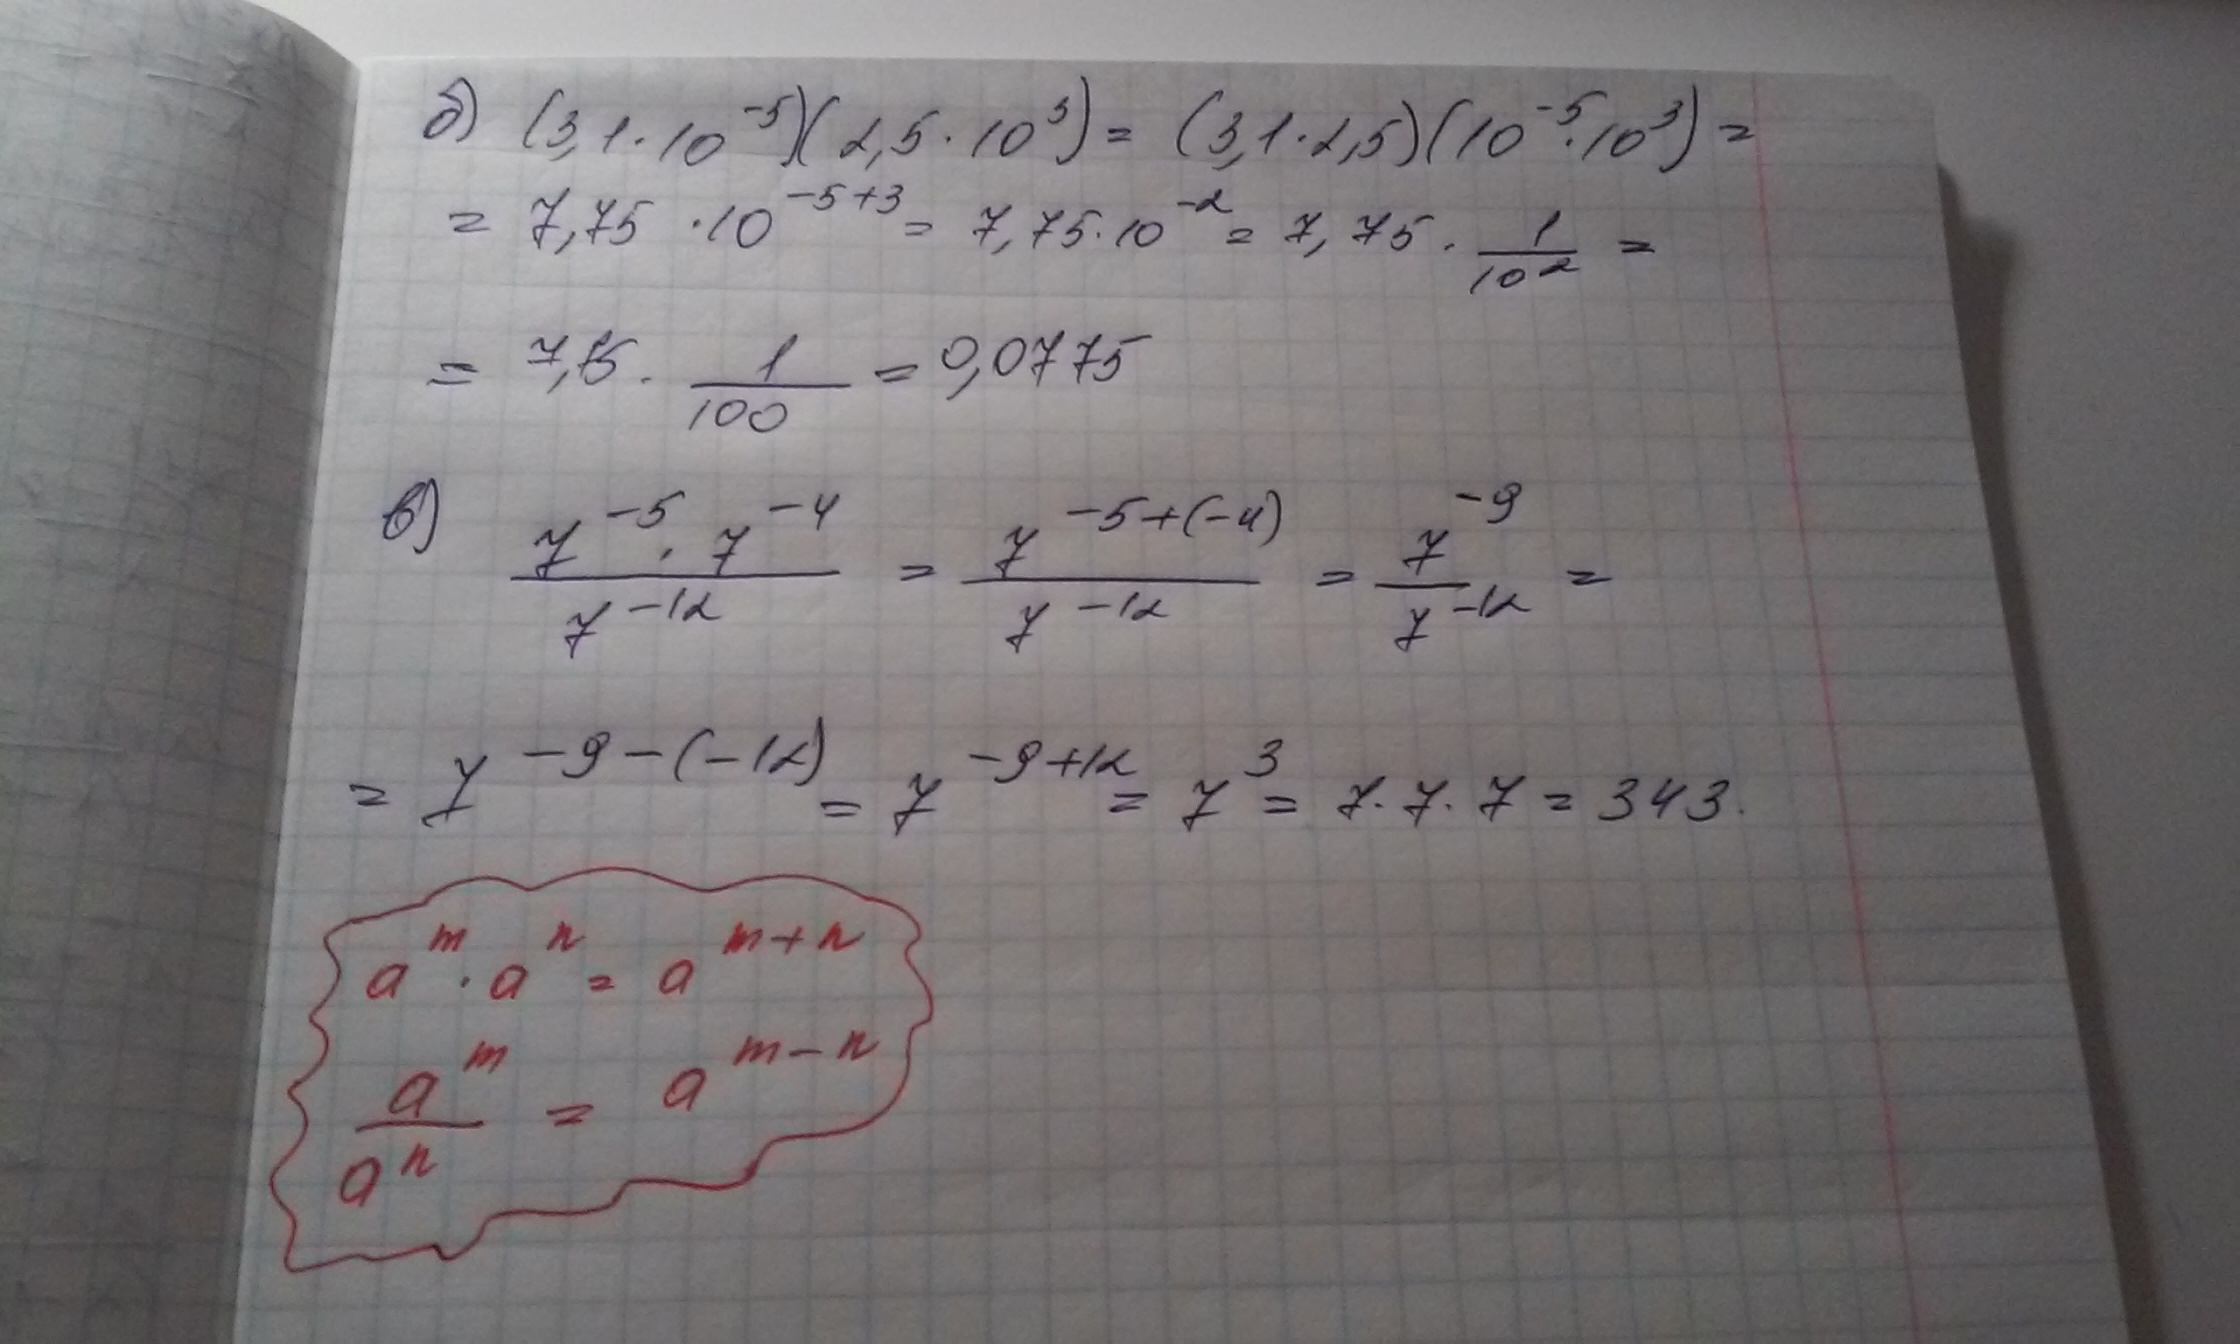 б) (3,1·10⁻⁵)(2,5·10³) = (3,1·2,5)(10⁻⁵·10³) =
= 7,75·10⁻⁵⁺³ = 7,75·10⁻² = 7,75·1/10² =
= 7,75·1/100 = 0,0775
в) (7⁻⁵·7⁻⁴)/7⁻¹² = 7⁻⁵⁺⁽⁻⁴⁾/7⁻¹² = 7⁻⁹/7⁻¹² =
= 7⁻⁹⁻⁽⁻¹²⁾ = 7⁻⁹⁺¹² = 7³ = 7·7·7 = 343.
aᵐ·aⁿ = aᵐ⁺ⁿ
aᵐ/aⁿ = aᵐ⁻ⁿ